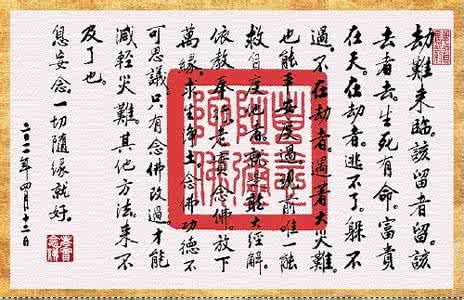 劫難來臨。該留者留。該
去者去。生死有命。富貴
在天。在劫者。逃不了。躲不
過。不在劫者。遇著大災難。
也能平安度過。現前唯一能
救自度他者。就是能大經解。
依教奉行。老實念佛。放下
萬緣。求生淨土。念佛功德不
可思議。只有念佛改過。才能
減輕災難。其他方法。來不
及了也。
息妄念。一切隨緣就好。
二〇一一年四月十二日
老實念佛